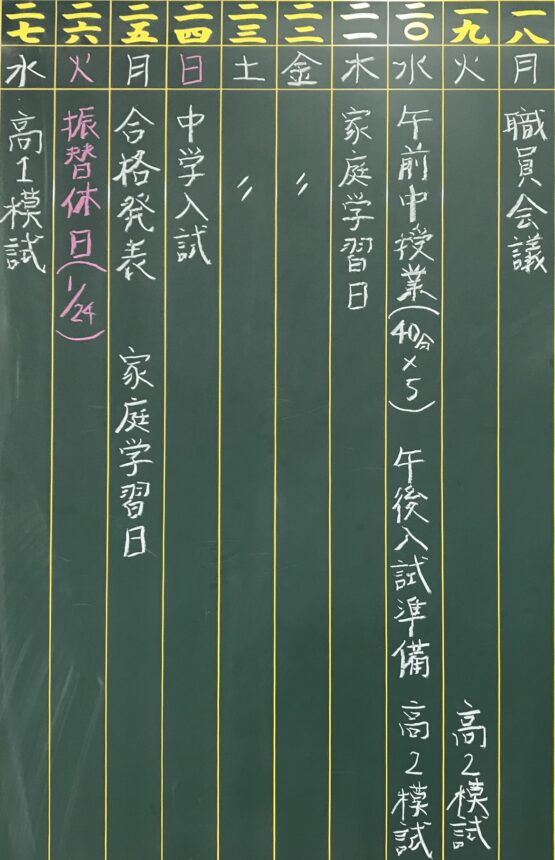 一八
月
職員会議
一九
火
高2模試
二〇
水
午前中授業(40分×5) 午後入試準備 高2模試
二一
木
家庭学習日
二二
金
〃
二三
土
〃
二四
日
中学入試
二五
月
合格発表 家庭学習日
二六
火
振替休日(1/24)
二七
水
高1模試